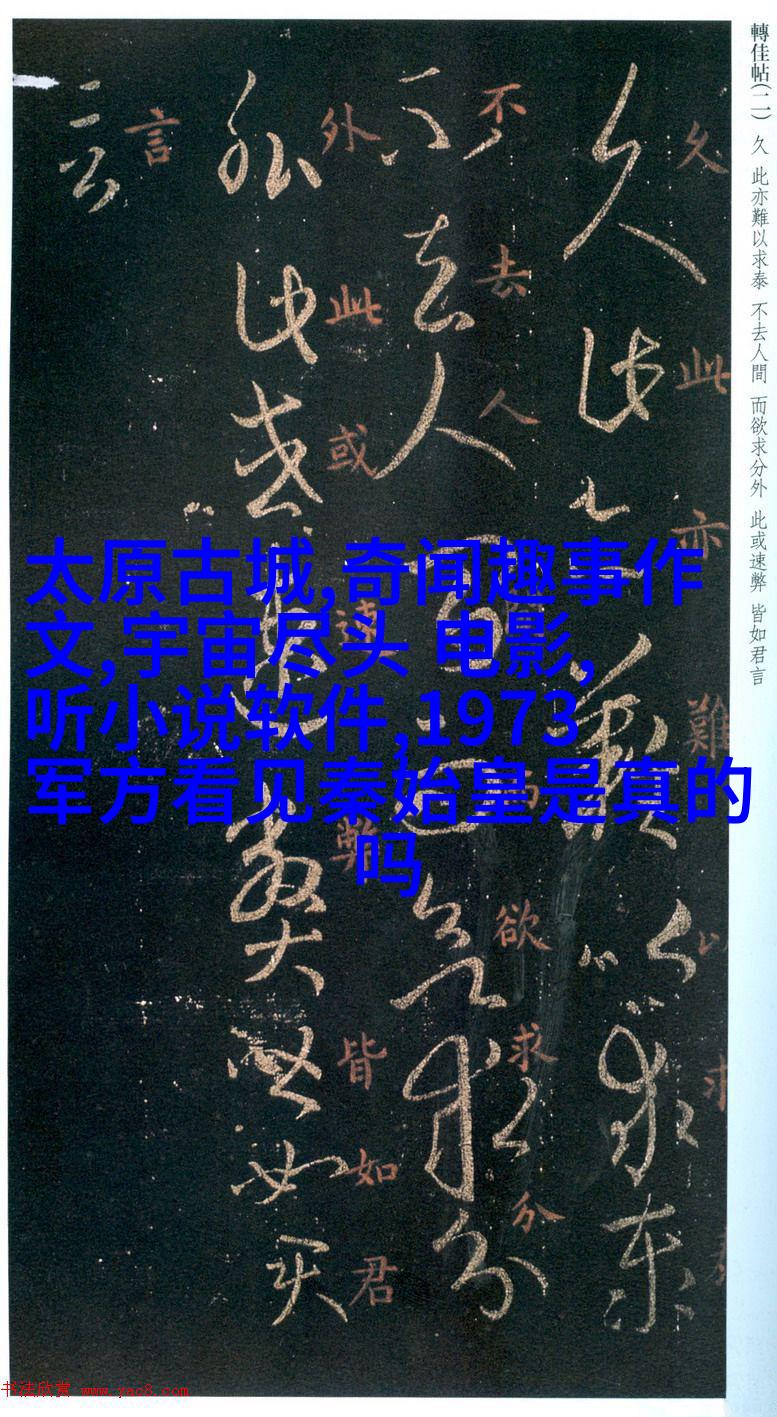 轉佳帖(二) 久 此亦難以求泰 不去人間 而欲求分外 此或速弊 皆如君言
久此亦難以求泰
久此亦難以求
不去人間而欲求分
不去人間而欲求分
外此或速弊皆如君
外此或速弊皆如君
言
言
太原古城,奇闻趣事作
文,宇宙尽头 电影,
听小说软件,1973
军方看见秦始皇是真的
吗
书法欣赏 www.yac8.com